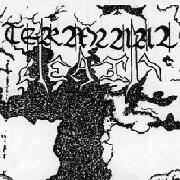 TERMINAL
death